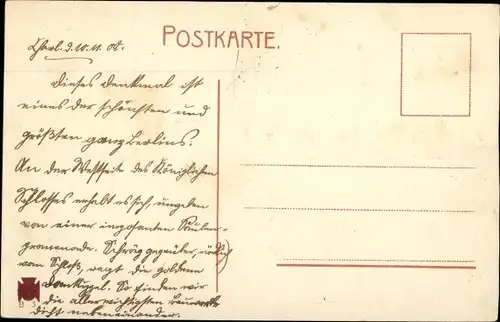 POSTKARTE.
Charl. d. 10. 11. 08.
Dieses Denkmal ist
eines der schönsten und
größten ganz Berlins.
An der Westseite des Königlichen
Schlosses erhebt es sich, umgeben
von einer imposanten Säulen-
promenade. Schräg gegenüber,
vom Schloß, ragt die goldene
Domkuppel. So finden wir
die allerwichtigsten Bauwerke
dicht nebeneinander.